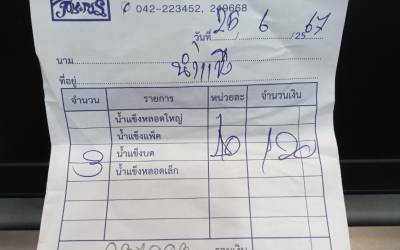 042-223452, 249668
วันที่ 26 / 6 / 2567
นาม
น้ำแข็ง
ที่อยู่
จำนวน รายการ หน่วยละ จำนวนเงิน
น้ำแข็งหลอดใหญ่
น้ำแข็งแพ็ค
3 น้ำแข็งบด 40 120
น้ำแข็งหลอดเล็ก
รวมเงิน